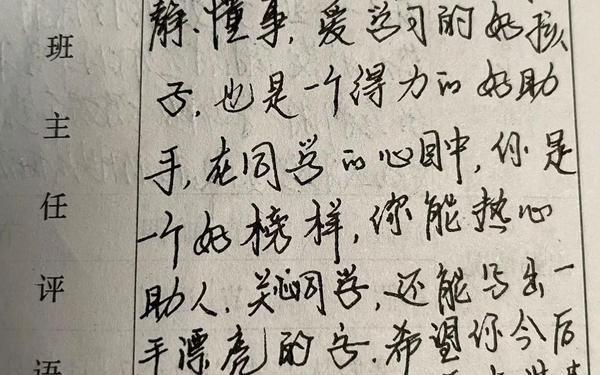 班主任评语
静、懂事,爱学习的好孩
子,也是一个得力的好助
手,在同学的心目中,你是
一个好榜样,你能热心
助人,关心同学,还能写出一
手漂亮的字.希望你今后